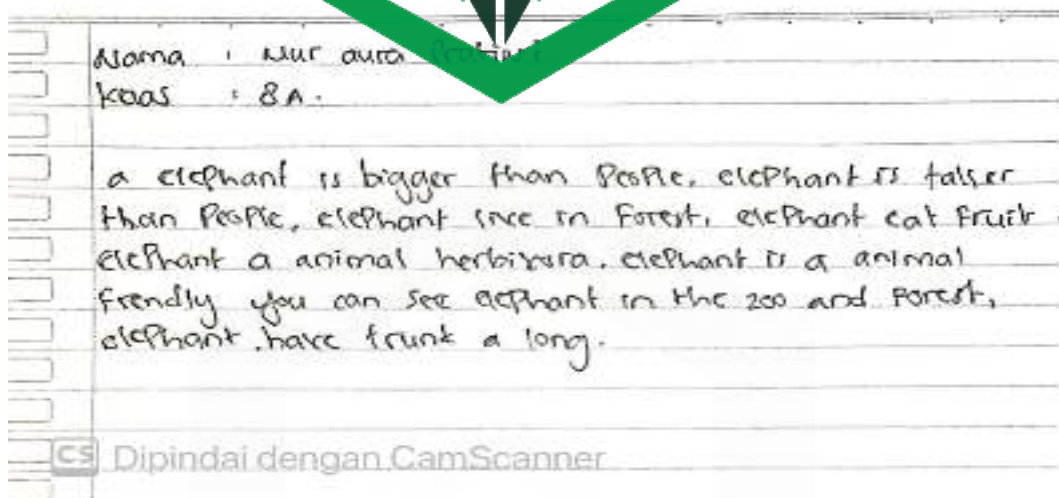 Nama : Nur aura
Kaas : 8A.
a elephant is bigger than People, elephant is taller
than People, elephant live in Forest, elephant eat Fruit
elephant a animal herbivora. elephant is a animal
frendly you can see elephant in the zoo and Forest,
elephant have trunk a long.
CS Dipindai dengan CamScanner